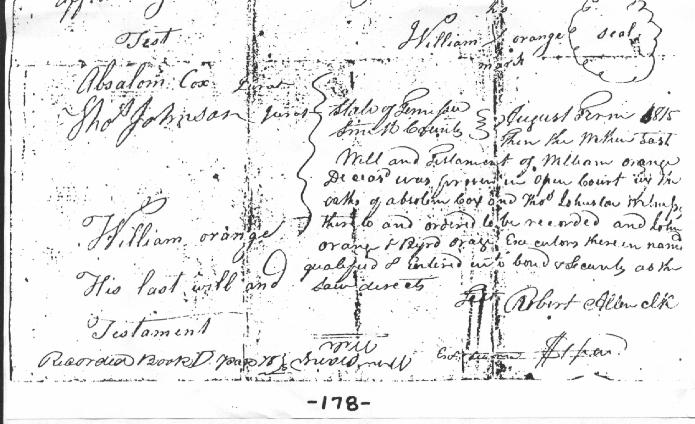 his
Test
William orange seal
mark
Absalom Cox Jurat
Thos Johnson Jurat
State of Tennessee August Term 1815
Smith County Then the Within Last
Will and Testament of William orange
Deceasd was proven in open Court by the
oaths of absolem Cox and Thos Johnston Witness
thereto and ordered to be recorded and John
orange & Byrd orange Executors therein named
qualified & Entered into bond & Security as the
Law directs
Test Robert Allen clk
William orange
His last will and
Testament
Recorded Book D. page
Will
-178-